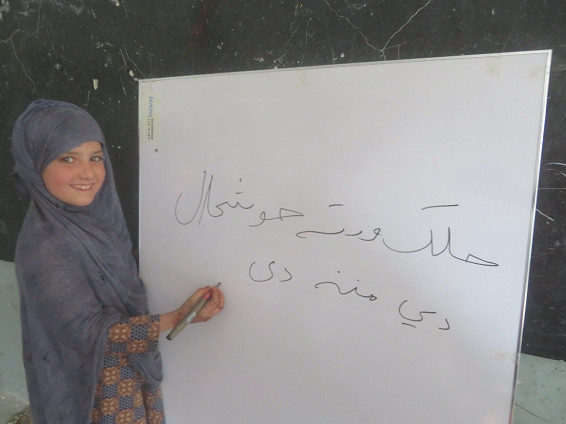 هلک ورته خوشحال
دي منه دی